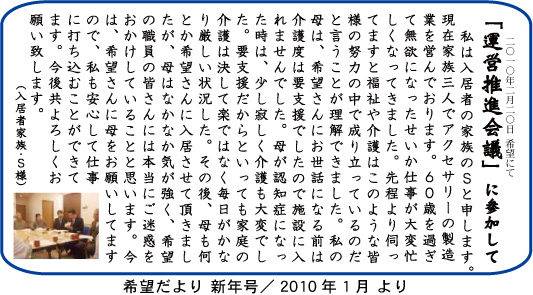 『運営推進会議』に参加して
二〇一〇年一月二〇日 希望にて
私は入居者の家族のSと申します。
現在家族三人でアクセサリーの製造
業を営んでおります。60歳を過ぎ
て無欲になったせいか仕事が大変忙
しくなってきました。先程より伺っ
てますと福祉や介護はこのような皆
様の努力の中で成り立っているのだ
と言うことが理解できました。私の
母は、希望さんにお世話になる前は
介護度は要支援でしたので施設に入
れませんでした。母が認知症になっ
た時は、少し寂しく介護も大変でし
た。要支援だからといっても家庭の
介護は決して楽ではなく毎日がかな
り厳しい状況した。その後、母も何
とか希望さんに入居させて頂きまし
たが、母はなかなか気が強く、希望
の職員の皆さんには本当にご迷惑を
おかけしていることと思います。今
は、希望さんに母をお願いしてます
ので、私も安心して仕事
に打ち込むことができて
ます。今後共よろしくお
願い致します。
(入居者家族・S様)
希望だより 新年号/2010年1月 より